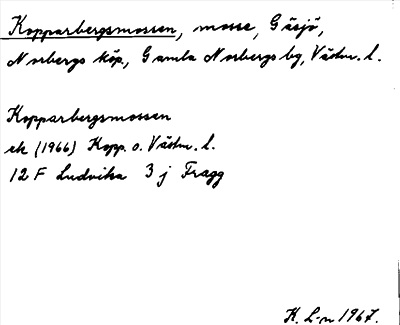 Kopparbergsmossen, mosse, Gäsjö,
Norbergs köp., Gamla Norbergs bg, Västm. l.
Kopparbergsmossen
ek (1966) Kopp. o. Västm. l.
12 F Ludvika 3 j Fragg
K. L-n 1967.